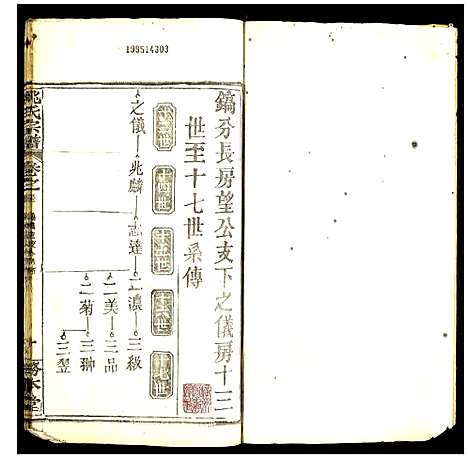 199514303
鎬分長房望公支下之儀房十三
世至十七世系傳
十三世
十四世
十五世
十六世
十七世
之儀 兆麟 志達 二濃 三級
二美 三品
二菊 三翀
三翌
姚氏宗譜 卷之
務本堂